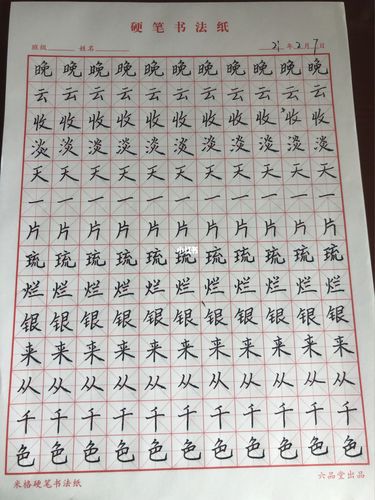 硬笔书法纸
班级 姓名 21年2月7日
晚晚晚晚晚晚晚晚晚晚晚
云云云云云云云云云云云
收收收收收收收收收收收
淡淡淡淡淡淡淡淡淡淡淡
天天天天天天天天天天天
一一一一一一一一一一一
片片片片片片片片片片片
琉琉琉琉琉琉琉琉琉琉琉
小红书
烂烂烂烂烂烂烂烂烂烂烂
银银银银银银银银银银银
来来来来来来来来来来来
从从从从从从从从从从从
千千千千千千千千千千千
色色色色色色色色色色色
米格硬笔书法纸 六品堂出品